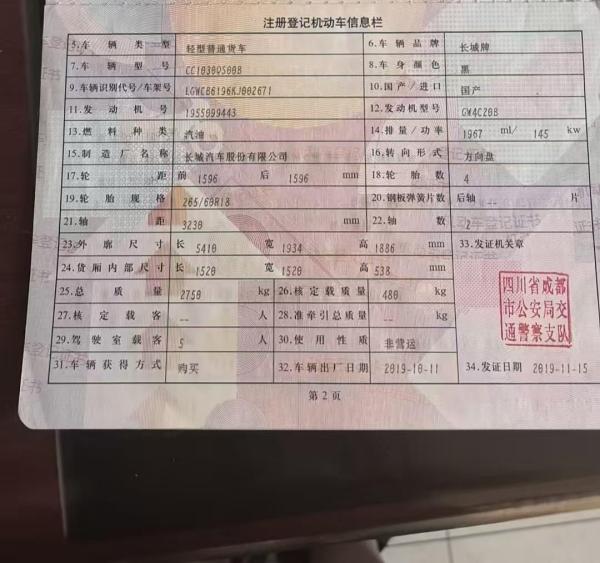 注册登记机动车信息栏
5.车辆类型 轻型普通货车 6.车辆品牌 长城牌
7.车辆型号 CC1030QS00B 8.车身颜色 黑
9.车辆识别代号/车架号 LGWCB6196KJ002671 10.国产/进口 国产
11.发动机号 1955099443 12.发动机型号 GW4C20B
13.燃料种类 汽油 14.排量/功率 1967 ml/ 145 kw
15.制造厂名称 长城汽车股份有限公司 16.转向形式 方向盘
17.轮距 前 1596 后 1596 mm 18.轮胎数 4
19.轮胎规格 265/60R18 20.钢板弹簧片数 后轴 -- 片
21.轴距 3230 mm 22.轴数 2
23.外廓尺寸 长 5410 宽 1934 高 1886 mm 33.发证机关章
24.货厢内部尺寸 长 1520 宽 1520 高 538 mm
25.总质量 2750 kg 26.核定载质量 480 kg
27.核定载客 -- 人 28.准牵引总质量 -- kg
29.驾驶室载客 5 人 30.使用性质 非营运
31.车辆获得方式 购买 32.车辆出厂日期 2019-10-11 34.发证日期 2019-11-15
四川省成都
市公安局交
通警察支队
第2页